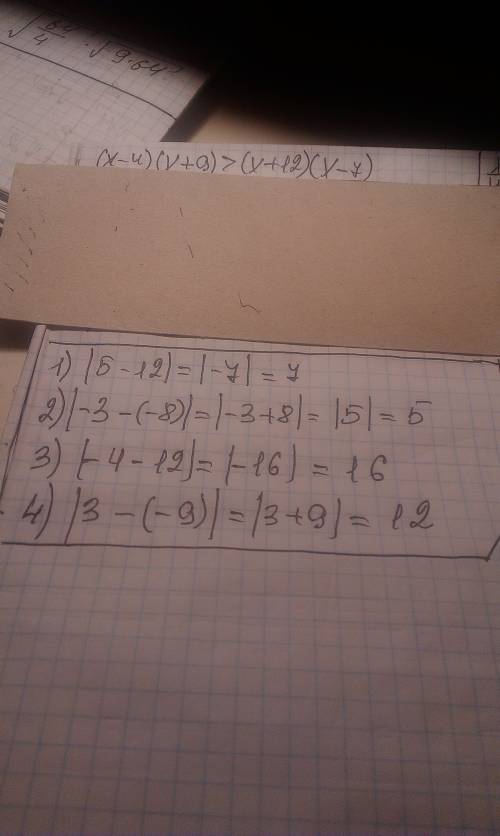 √64/4 · √9·64
(x-4)(x+9)>(x+12)(x-7)
1) |5-12|=|-7|=7
2) |-3-(-8)|=|-3+8|=|5|=5
3) |-4-12|=|-16|=16
4) |3-(-9)|=|3+9|=12